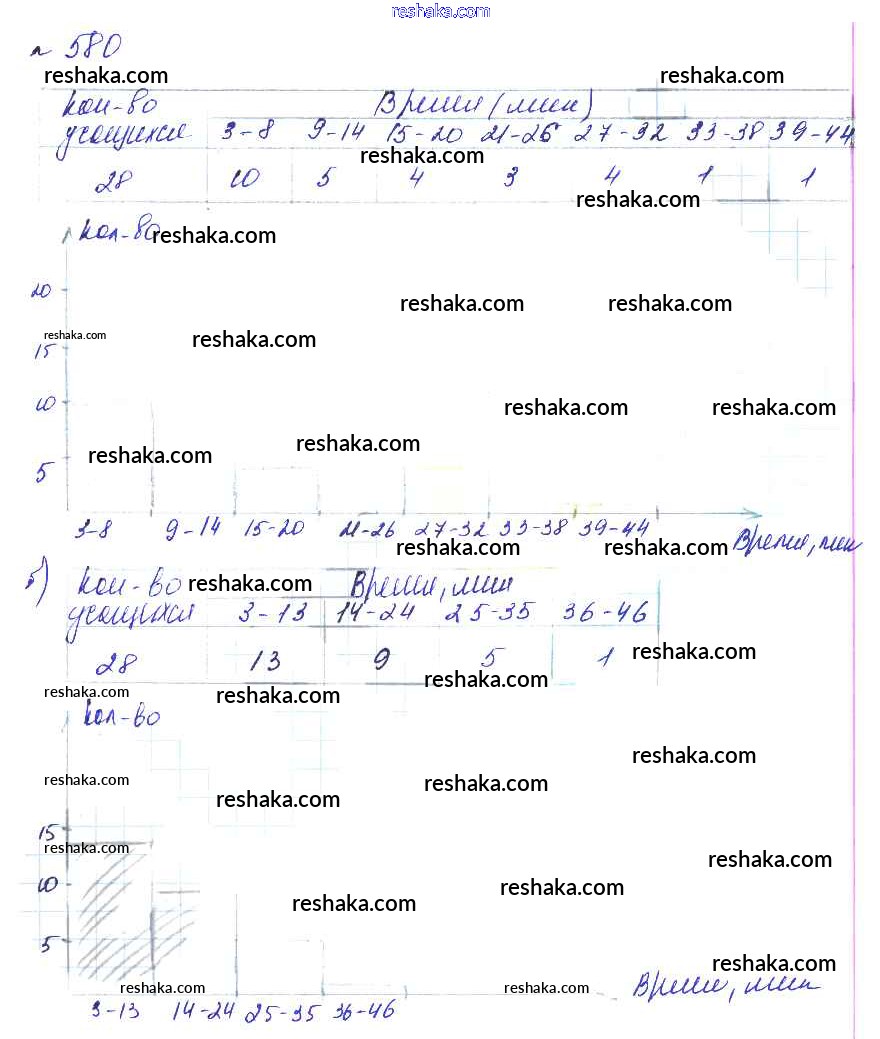 reshaka.com
n 580
reshaka.com reshaka.com
кол-во Время (мин)
учащихся 3-8 9-14 15-20 21-26 27-32 33-38 39-44
reshaka.com
28 10 5 4 3 4 1 1
reshaka.com
кол-во reshaka.com
20
reshaka.com reshaka.com
reshaka.com reshaka.com
15
10 reshaka.com reshaka.com
reshaka.com reshaka.com
5
3-8 9-14 15-20 21-26 27-32 33-38 39-44 Время, мин
reshaka.com reshaka.com
б) кол-во reshaka.com Время, мин
учащихся 3-13 14-24 25-35 36-46
28 13 9 5 1 reshaka.com
reshaka.com reshaka.com reshaka.com
кол-во
reshaka.com reshaka.com
reshaka.com reshaka.com
15
reshaka.com reshaka.com
10 reshaka.com
reshaka.com
5
reshaka.com
reshaka.com reshaka.com Время, мин
3-13 14-24 25-35 36-46